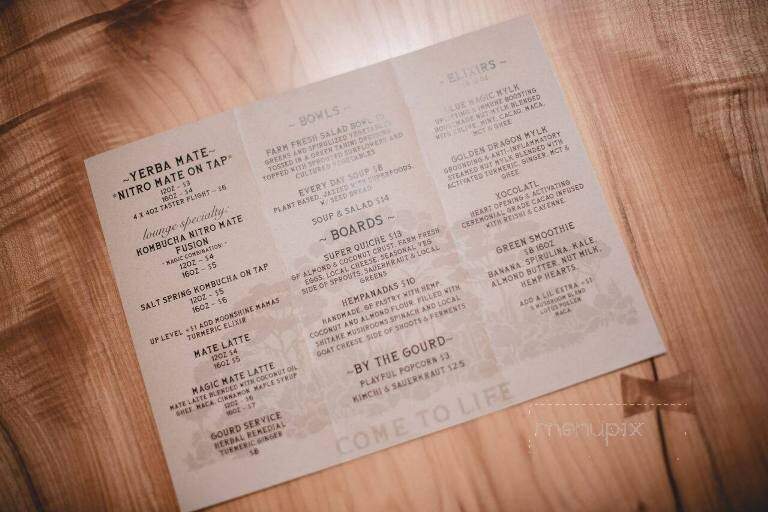 ~YERBA MATE~
*NITRO MATE ON TAP*
12OZ - $3
16OZ - $4
4 X 4OZ TASTER FLIGHT - $6
lounge specialty:
KOMBUCHA NITRO MATE
FUSION
"MAGIC COMBINATION!"
12OZ - $4
16OZ - $5
SALT SPRING KOMBUCHA ON TAP
12OZ - $5
16OZ - $6
UP LEVEL +$1 ADD MOONSHINE MAMAS
TURMERIC ELIXIR
MATE LATTE
12OZ $4
16OZ - $5
MAGIC MATE LATTE
MATE LATTE BLENDED WITH COCONUT OIL
GHEE, MACA, CINNAMON, MAPLE SYRUP
12OZ - $6
16OZ - $7
GOURD SERVICE
HERBAL REMEDIAL
TURMERIC GINGER
$8
~ BOWLS ~
FARM FRESH SALAD BOWL
GREENS AND SPIRULIZED VEGETABLES
TOSSED IN A GREEN TAHINI DRESSING
TOPPED WITH SPROUTED SUNFLOWERS AND
CULTURED VEGETABLES
EVERY DAY SOUP $8
PLANT BASED, JAZZED W/ SUPERFOODS,
W/ SEED BREAD
SOUP & SALAD $14
~ BOARDS ~
SUPER QUICHE $13
GF ALMOND & COCONUT CRUST, FARM FRESH
EGGS, LOCAL CHEESE, SEASONAL VEG
SIDE OF SPROUTS, SAUERKRAUT & LOCAL
GREENS
HEMPANADAS $10
HANDMADE, GF PASTRY WITH HEMP
COCONUT AND ALMOND FLOUR, FILLED WITH
SHITAKE MUSHROOMS SPINACH AND LOCAL
GOAT CHEESE, SIDE OF SHOOTS & FERMENTS
~BY THE GOURD~
PLAYFUL POPCORN $3
KIMCHI & SAUERKRAUT $2.5
COME TO LIFE
~ ELIXIRS ~
BLUE MAGIC MYLK
UPLIFTING & IMMUNE BOOSTING
HOUSEMADE NUT MYLK BLENDED
WITH E3LIVE, MINT, CACAO, MACA,
MCT & GHEE
GOLDEN DRAGON MYLK
GROUNDING & ANTI-INFLAMMATORY
STEAMED NUT MYLK BLENDED WITH
ACTIVATED TURMERIC, GINGER, MCT &
GHEE
XOCOLATL
HEART OPENING & ACTIVATING
CEREMONIAL GRADE CACAO INFUSED
WITH REISHI & CAYENNE.
GREEN SMOOTHIE
$8 16OZ
BANANA, SPIRULINA, KALE,
ALMOND BUTTER, NUT MILK,
HEMP HEARTS.
ADD A LIL EXTRA +$1
5 MUSHROOM BLEND
LOTUS POLLEN
MACA
menupix